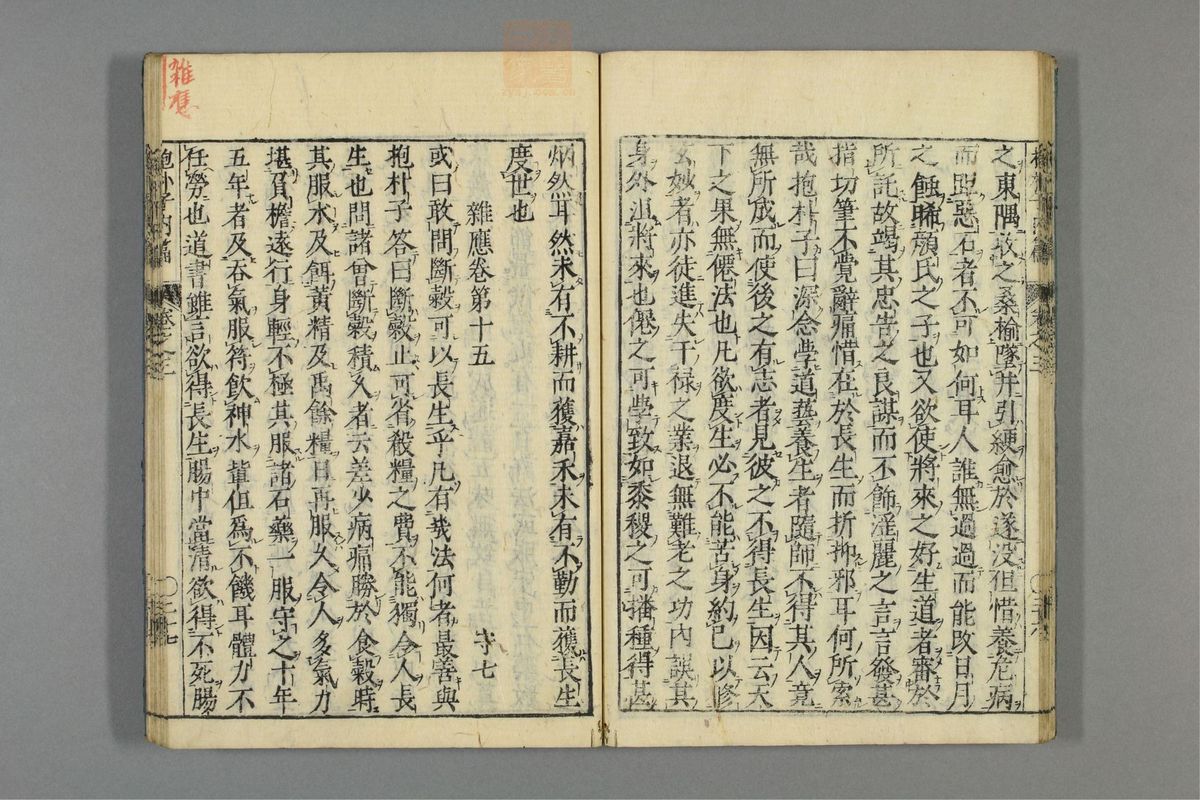 之東隅攺之桑榆墜井引綆愈於遂没但惜養危病
而距惡石者不可如何耳人誰無過過而能攺日月
之蝕睎顔氏之子也又欲使將來之好生道者審於
所託故竭其忠告之良謀而不飾淫麗之言言發甚
指切筆不覺辭痛惜在於長生而折抑邪耳何所索
哉抱朴子曰深念學道藝養生者隨師不得其人竟
無所成而使後之有志者見彼之不得長生因云天
下之果無僊法也凡欲度生必不能苦身約己以修
玄妙者亦徒進失干禄之業退無難老之功内誤其
身外沮將來也僊之可學致如黍稷之可播種得甚
炳然耳然未有不耕而獲嘉禾未有不勤而獲長生
度世也
雜應卷第十五 守七
或曰敢問斷穀可以長生乎凡有幾法何者最善與
抱朴子答曰斷穀止可省殺糧之費不能獨令人長
生也問諸曾斷穀積久者云差少病痛勝於食穀時
其服水及餌黄精及禹餘糧日再服久令人多氣力
堪負檐遠行身輕不極其服諸石藥一服守之十年
五年者及吞氣服符飲神水軰但爲不饑耳體力不
任勞也道書雖言欲得長生腸中當清欲得不死腸
抱朴子内篇 卷之三 二十七
雜應